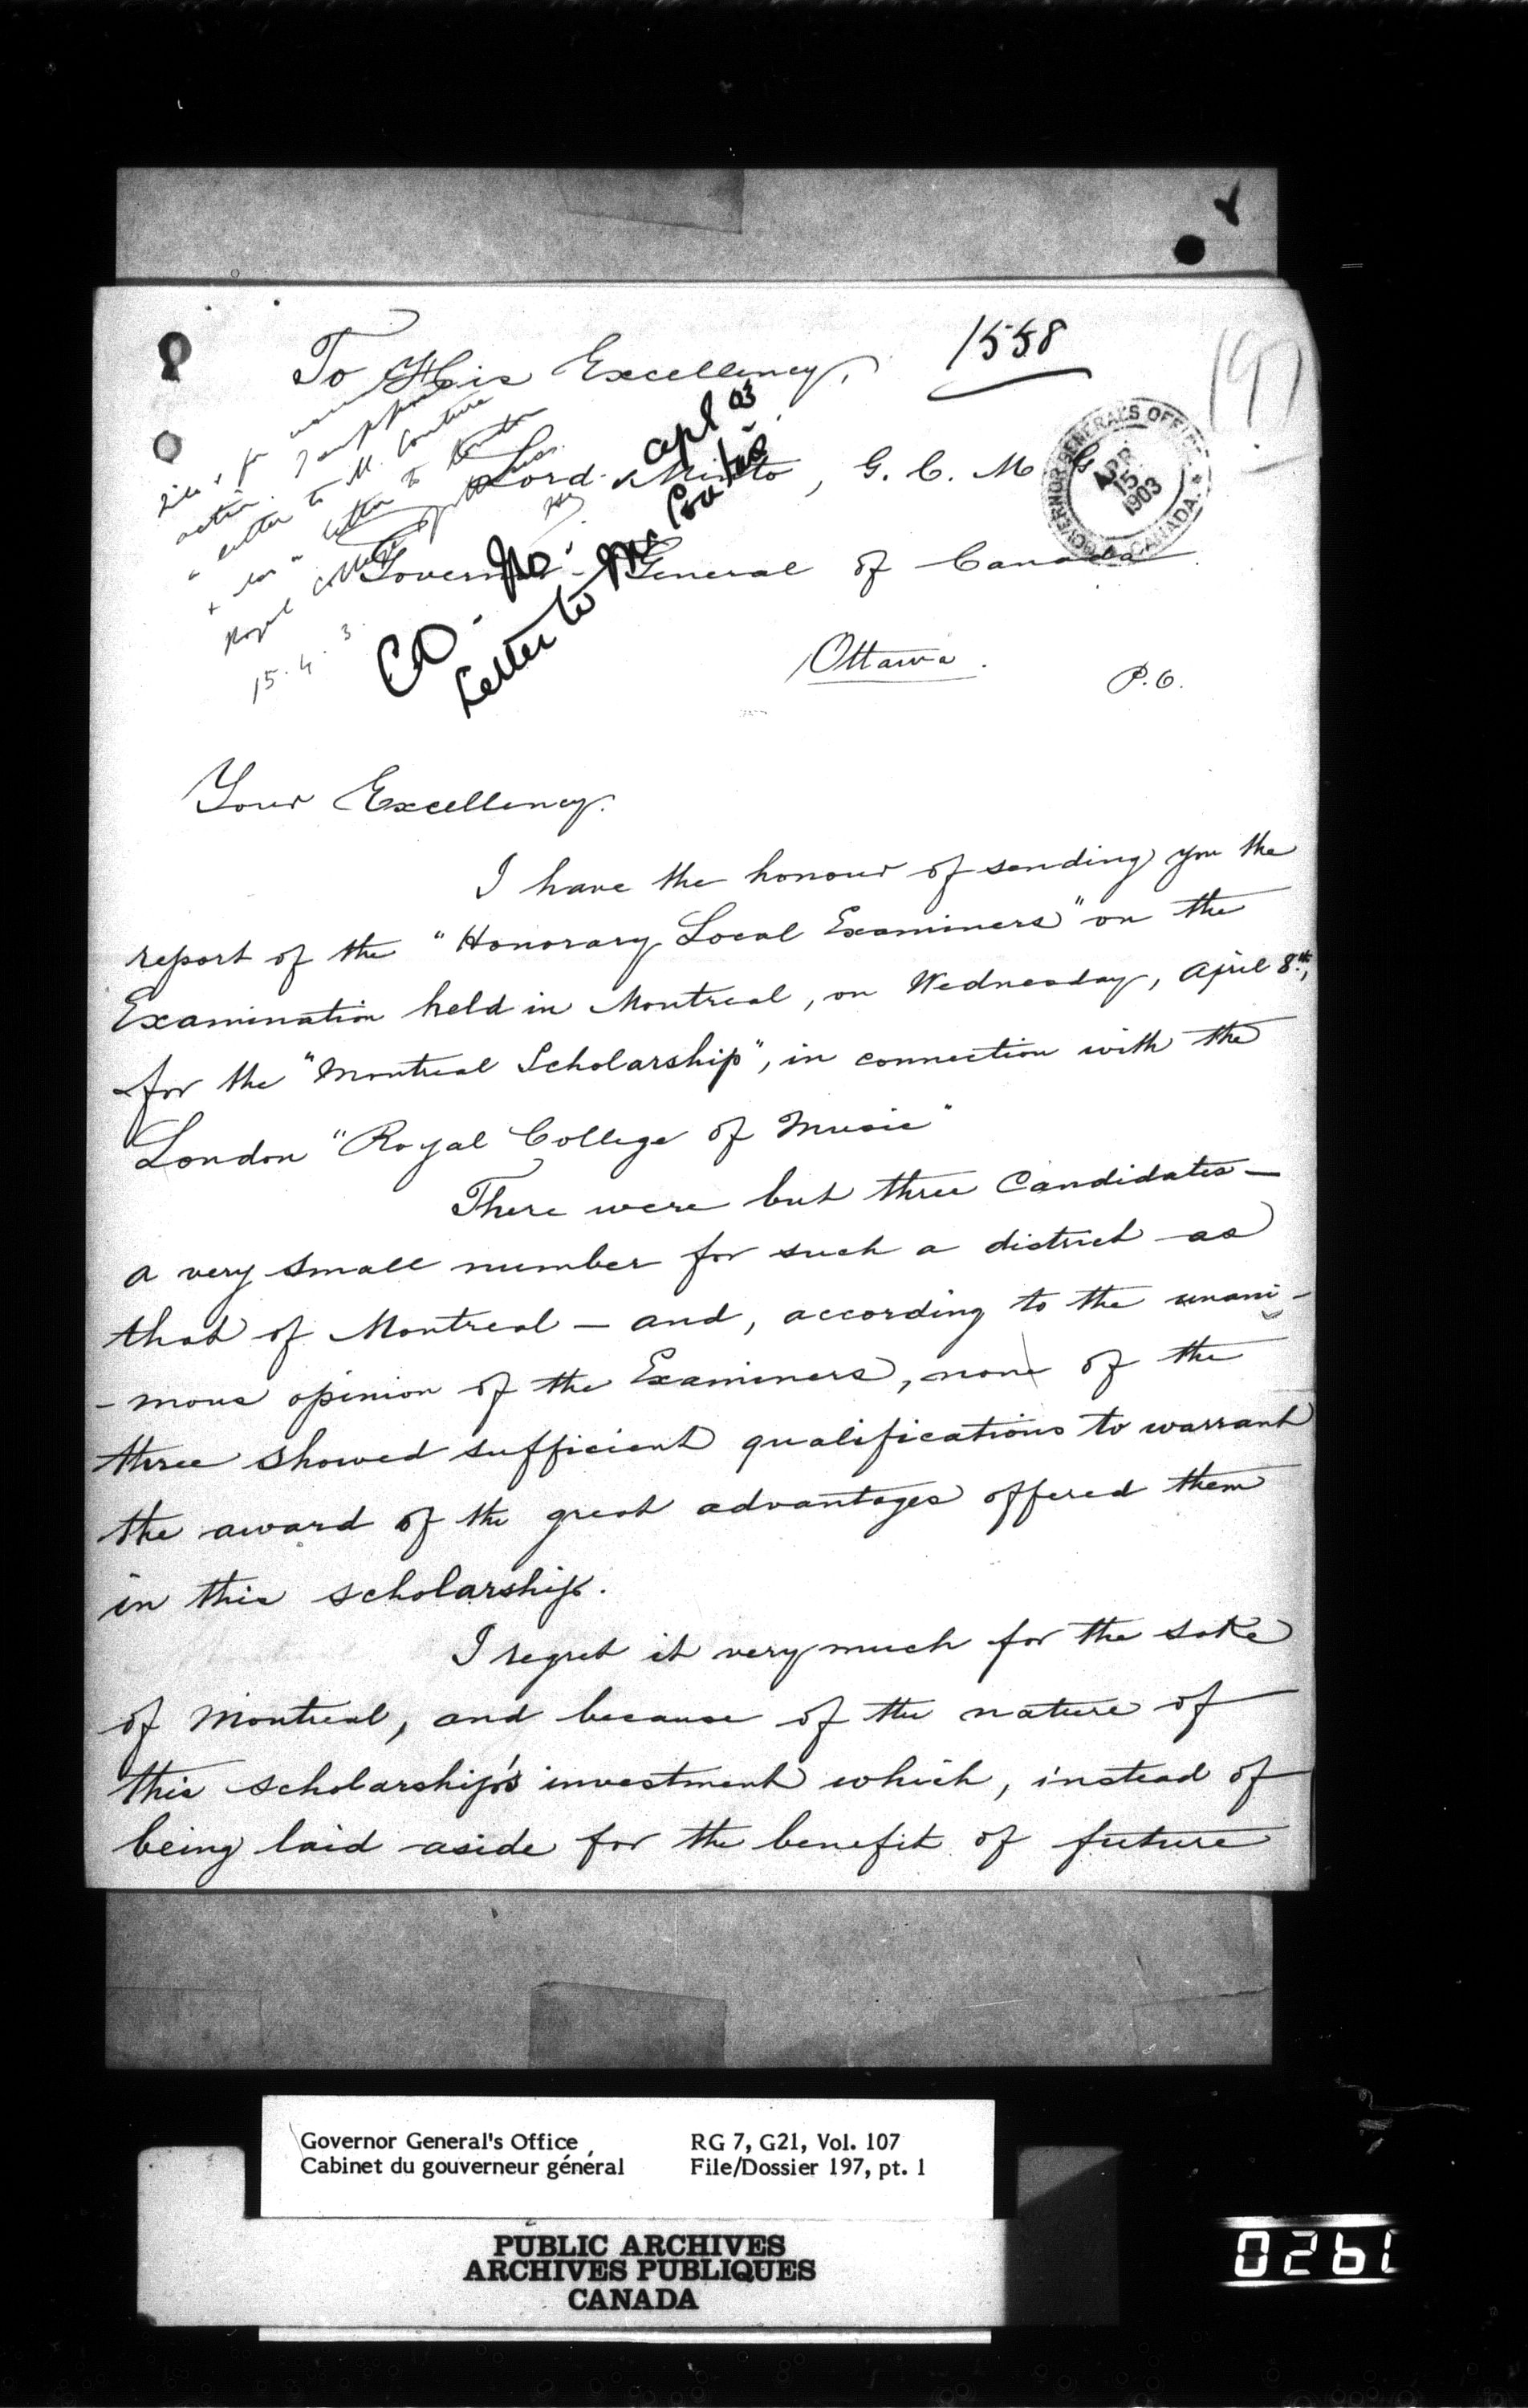 1558
197
To His Excellency,
Lord Minto, G. C. M. G.
Governor-General of Canada
Ottawa.
P.O.
GOVERNOR GENERAL'S OFFICE
APR.
15
1903
CANADA.
action.
letter to M. Couture
letter to
Royal College
15. 4. 3.
Apl 03
Letter to
Your Excellency.
I have the honour of sending you the
report of the "Honorary Local Examiners" on the
Examination held in Montreal, on Wednesday, April 8th,
for the "Montreal Scholarship", in connection with the
London "Royal College of Music"
There were but three Candidates —
a very small number for such a district as
that of Montreal — and, according to the unani-
-mous opinion of the Examiners, none of the
three showed sufficient qualifications to warrant
the award of the great advantages offered them
in this scholarship.
I regret it very much for the sake
of Montreal, and because of the nature of
this scholarship's investment which, instead of
being laid aside for the benefit of future
Governor General's Office
Cabinet du gouverneur général
RG 7, G21, Vol. 107
File/Dossier 197, pt. 1
PUBLIC ARCHIVES
ARCHIVES PUBLIQUES
CANADA
0261